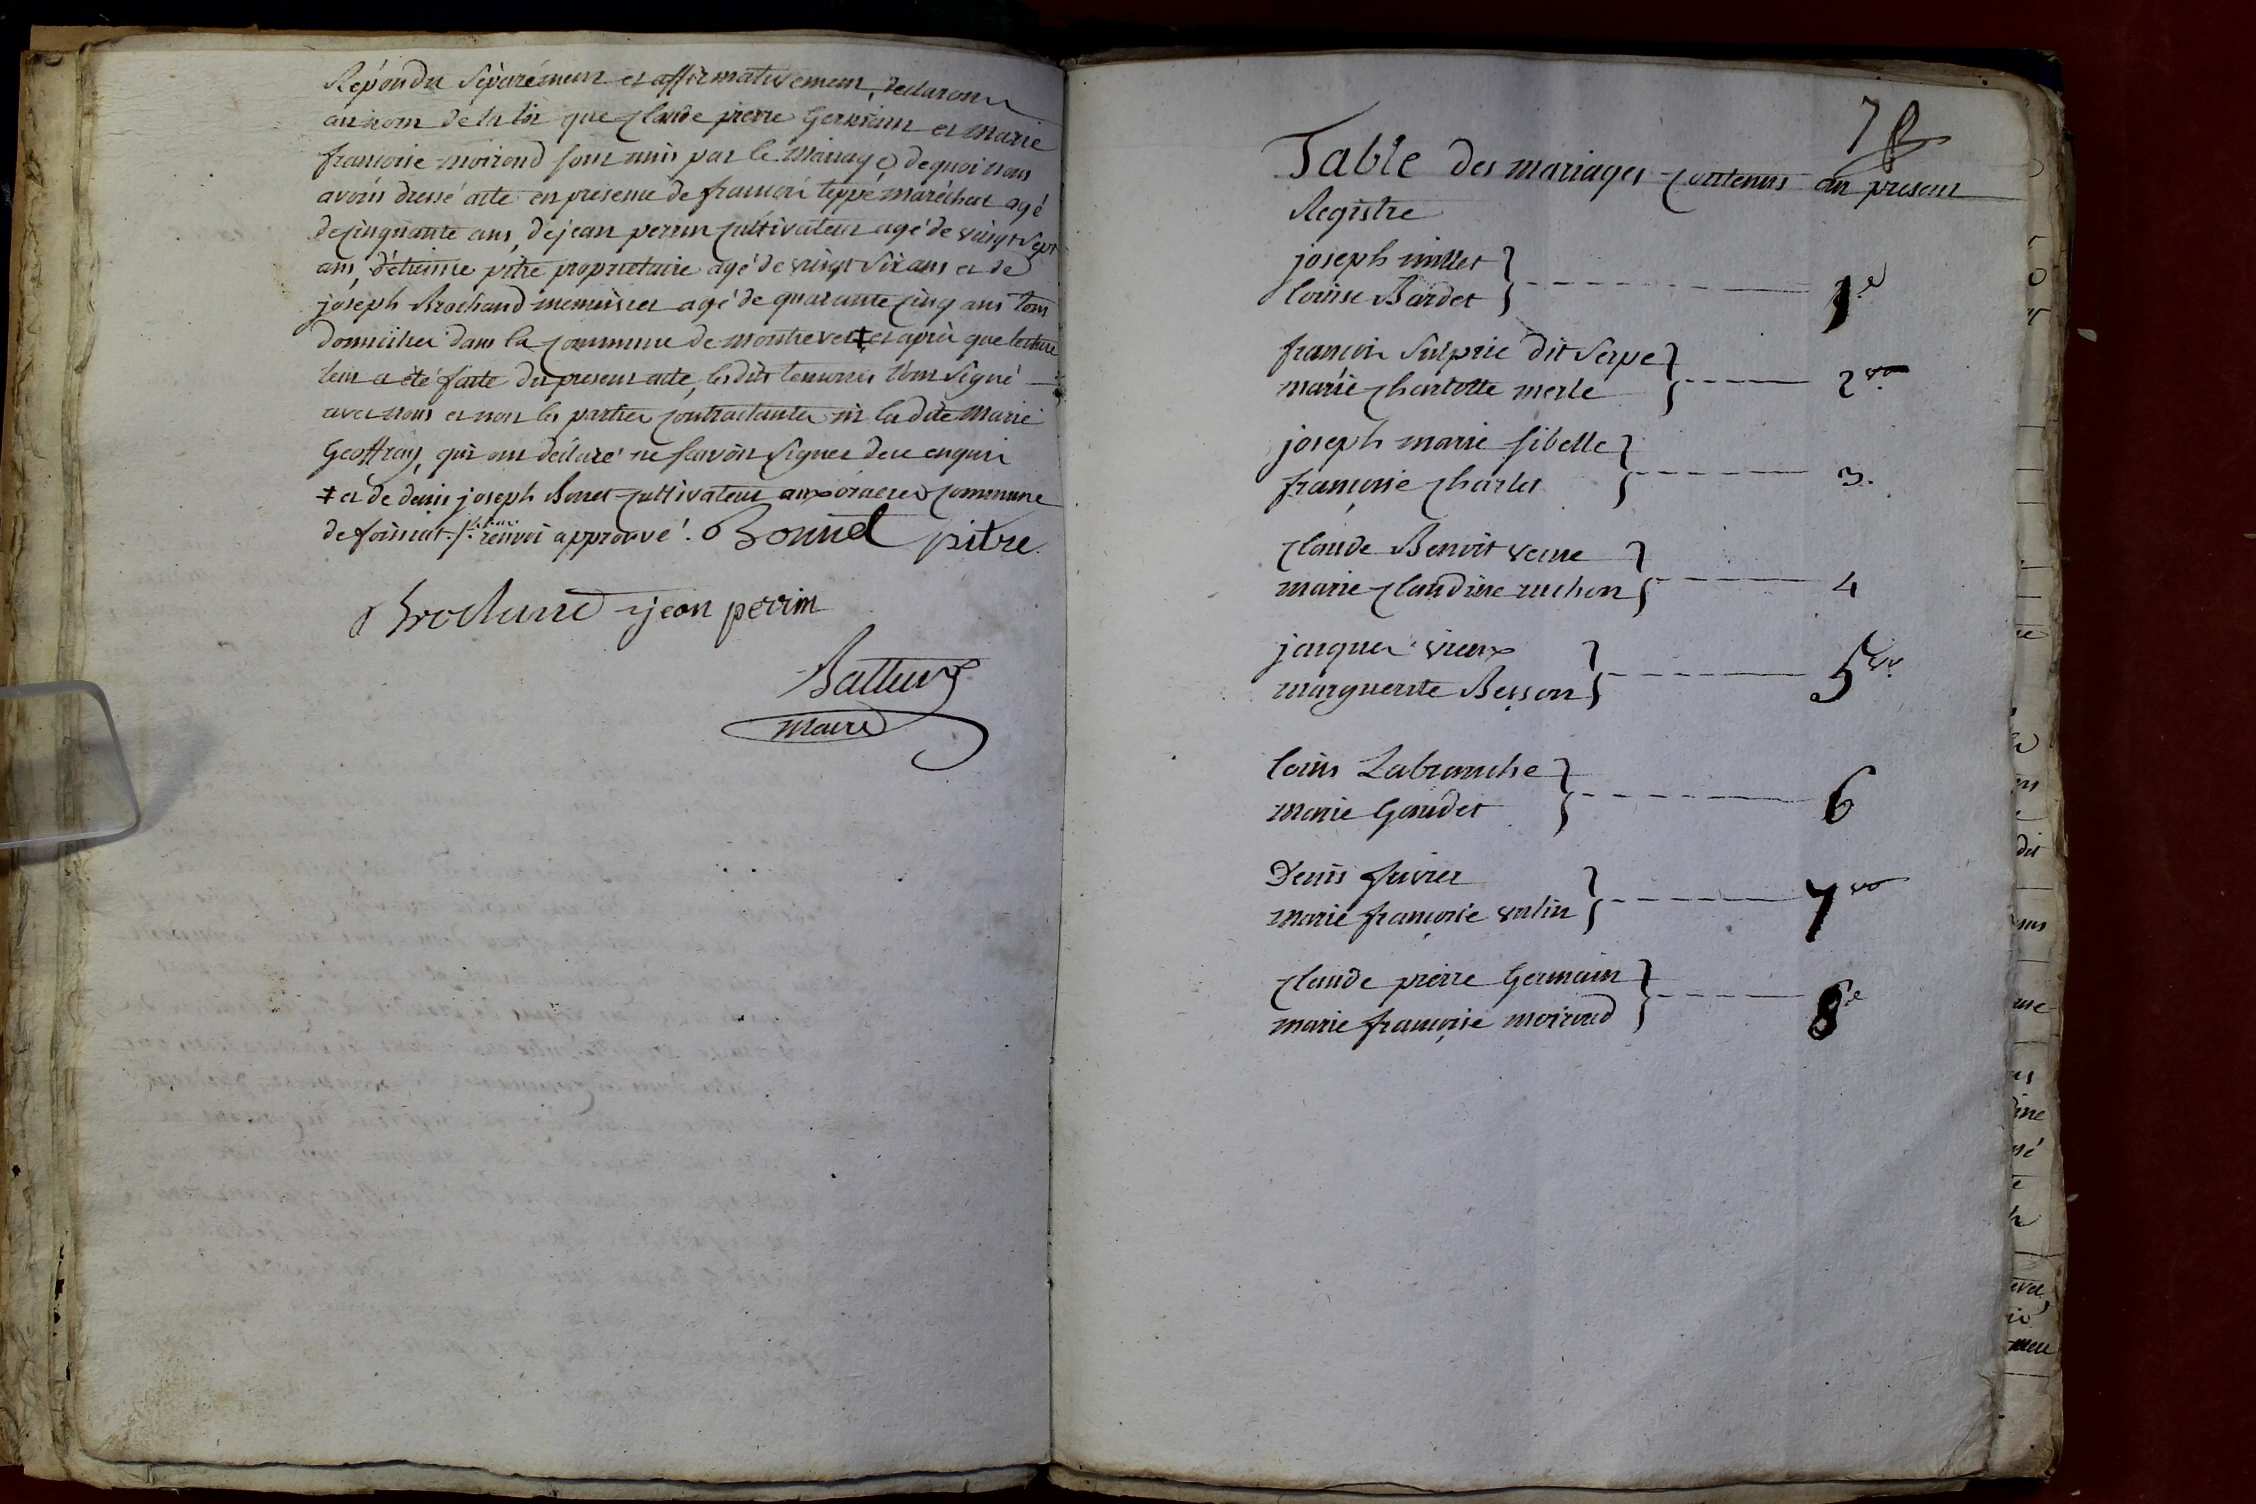 Répondu séparément et affirmativement, declarons
au nom de la loi que Claude pierre Germain et marie
francoise moiroud sont unis par le mariage, de quoi nous
avons dressé acte en présence de francois teppe maréchal agé
de cinquante ans, de jean perrin cultivateur agé de vaingt sept
ans, d'étienne pitre proprietaire agé de vaingt six ans et de
joseph Brochand menuisier agé de quarante cinq ans tous
domiciliés dans la commune de montrevel ‡ et après que lecture
leur a été faite du present acte, les dits temoins l'ont signé
avec nous et non les parties contractantes ni la dite Marie
Geoffray, qui ont déclaré ne savoir signer de ce enquis
‡ et de denis joseph Bonet cultivateur aux commune
de foissiat. renvoi approuvé. Bonnet pitre
Brochand jean perrin
maire
7
Table des mariages contenus au present
Registre
joseph millet
Louise Bardet } 1.e
francois Sulpric dit Serpe
marie Charlotte merle } 2 vo.
joseph marie sibelle
françoise Charlet } 3.
Claude Benoit verne
marie Claudine ruchon } 4
jacques vieux
marguerite Besson } 5 vo.
Louis Labranche
Marie Gaudet } 6
Denis fuvier
marie françoise valin } 7 vo
Claude pierre Germain
marie françoise moiroud } 8.e